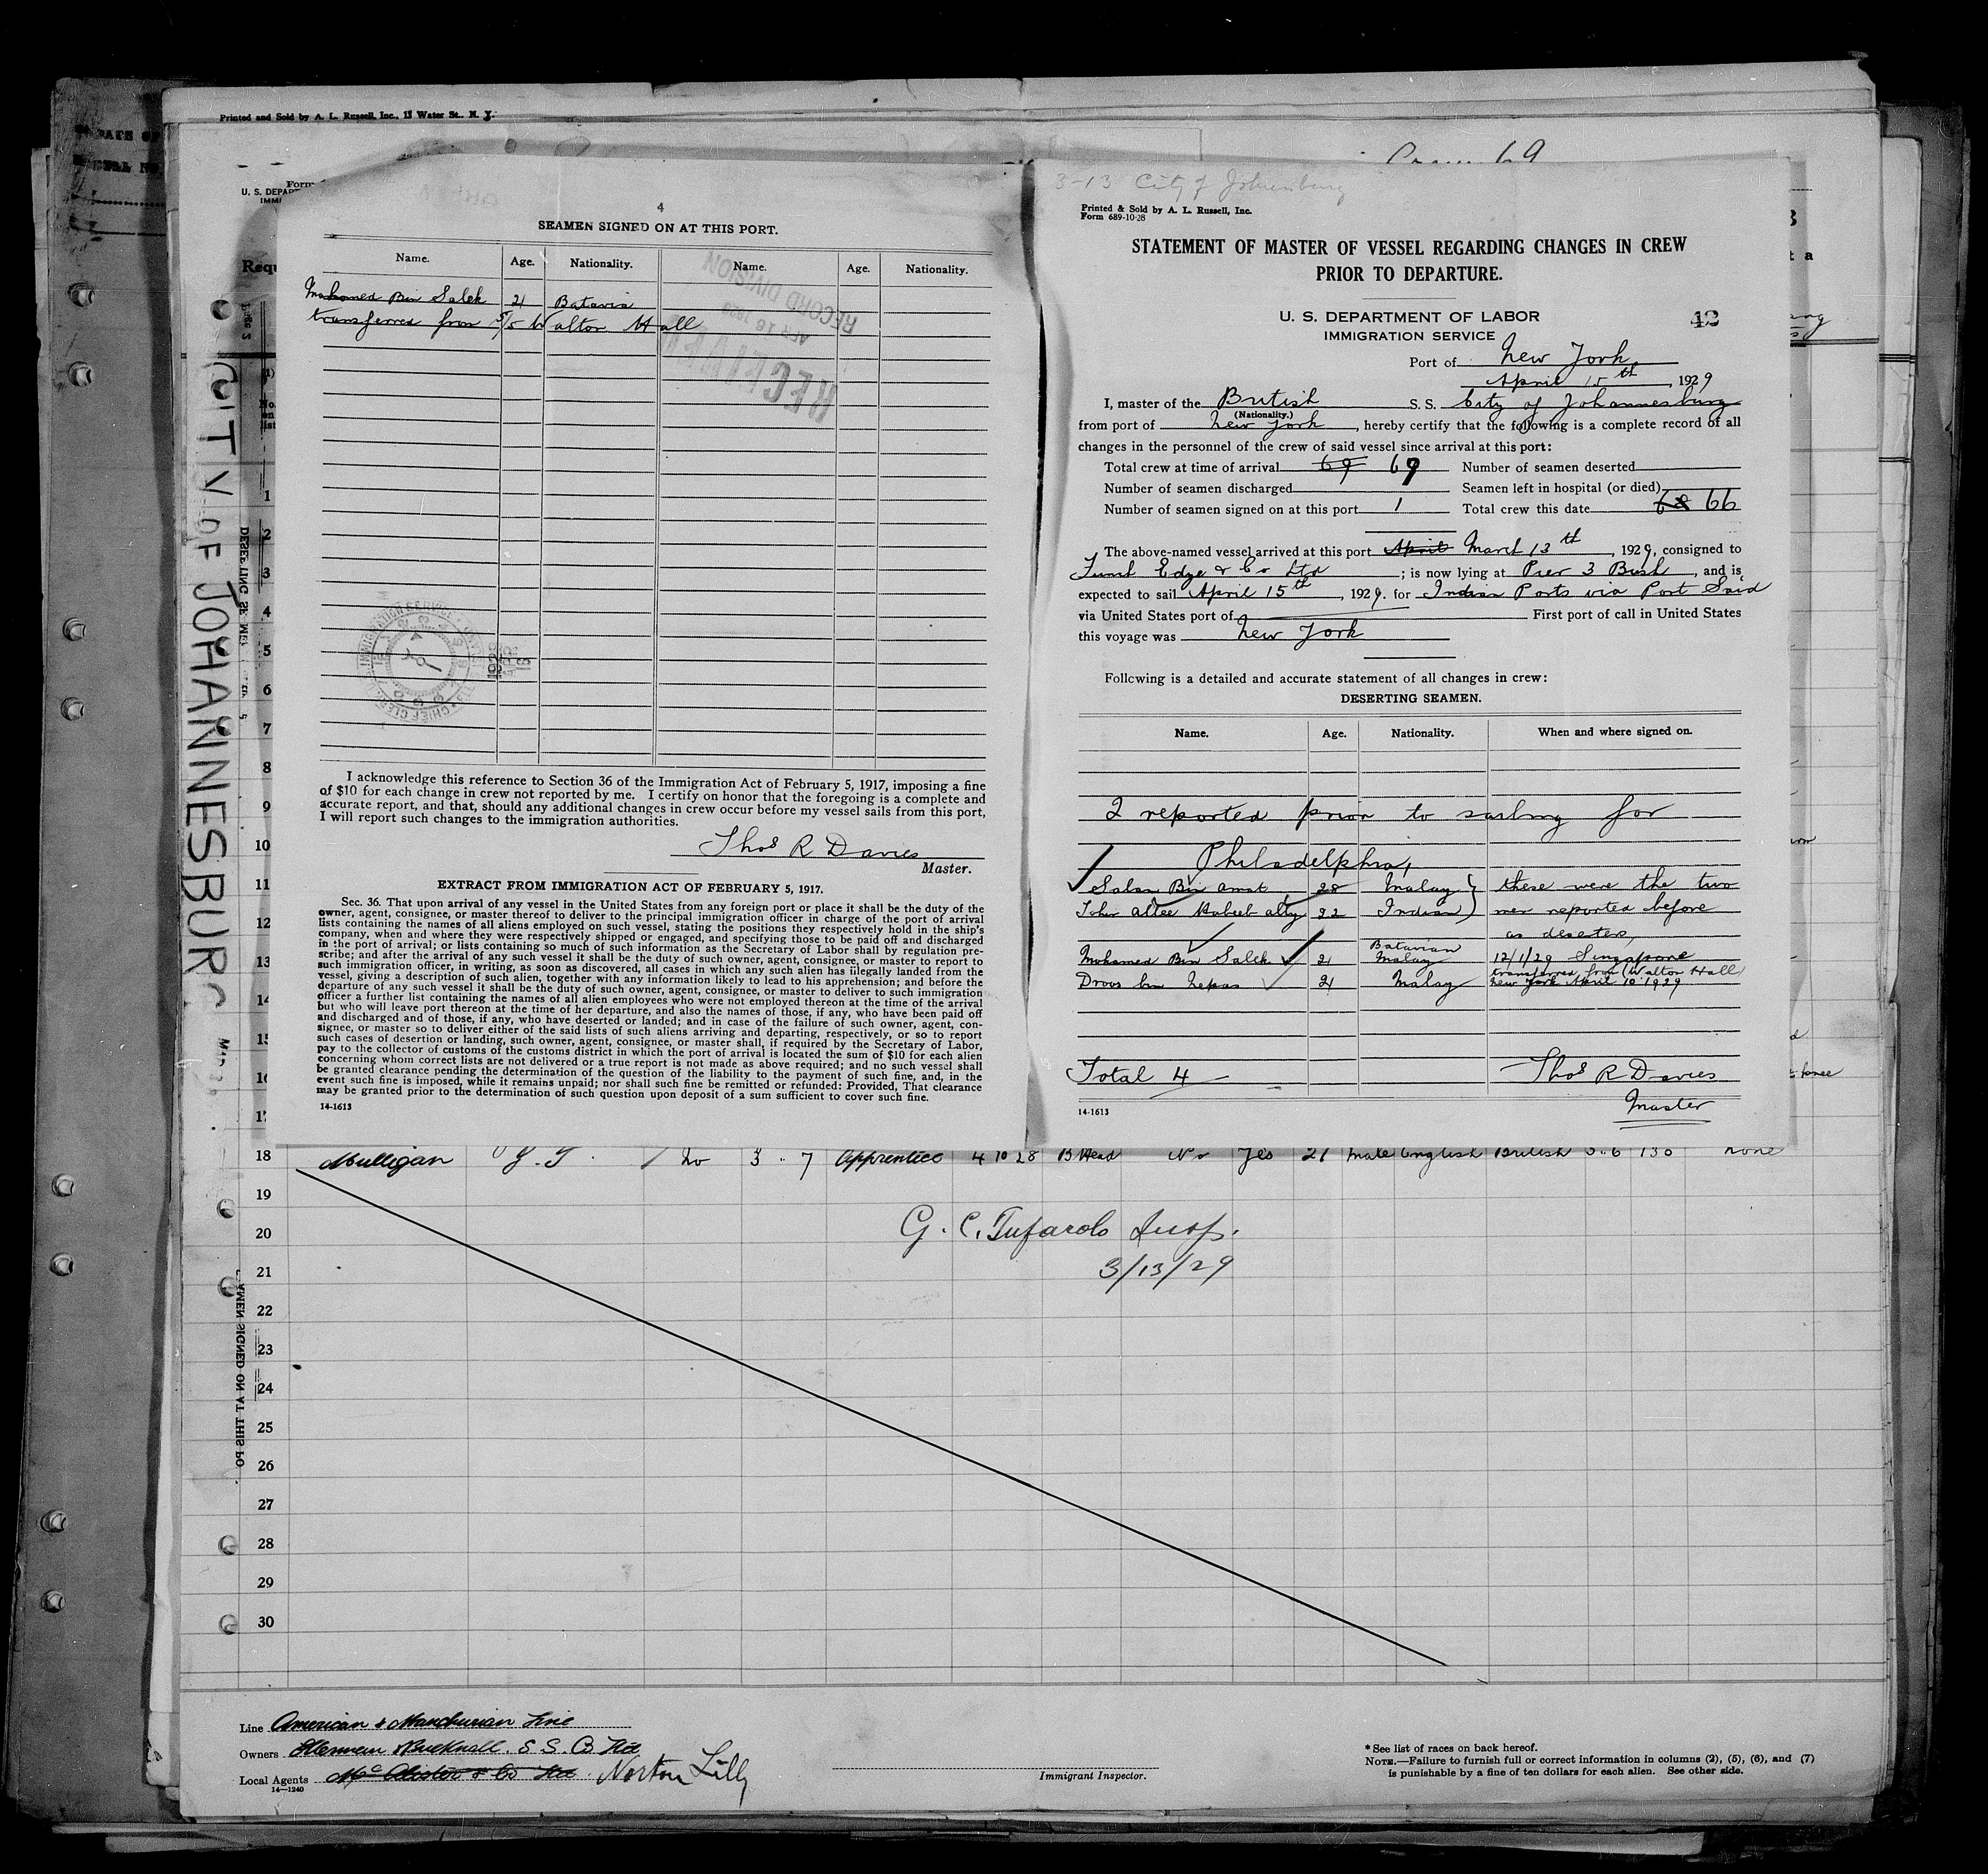 Printed and Sold by A. L. Russell, Inc., 13 Water St., N. Y.
Crew 69
CITY OF JOHANNESBURG
4
SEAMEN SIGNED ON AT THIS PORT.
Name. Age. Nationality. Name. Age. Nationality.
Mohamed Bin Saleh 21 Batavia
transferred from S/S Walton Hall
RECEIVED
APR 16 1929
RECORD DIVISION
I acknowledge this reference to Section 36 of the Immigration Act of February 5, 1917, imposing a fine
of $10 for each change in crew not reported by me. I certify on honor that the foregoing is a complete and
accurate report, and that, should any additional changes in crew occur before my vessel sails from this port,
I will report such changes to the immigration authorities.
Thos R Davies
Master.
EXTRACT FROM IMMIGRATION ACT OF FEBRUARY 5, 1917.
Sec. 36. That upon arrival of any vessel in the United States from any foreign port or place it shall be the duty of the
owner, agent, consignee, or master thereof to deliver to the principal immigration officer in charge of the port of arrival
lists containing the names of all aliens employed on such vessel, stating the positions they respectively hold in the ship's
company, when and where they were respectively shipped or engaged, and specifying those to be paid off and discharged
in the port of arrival; or lists containing so much of such information as the Secretary of Labor shall by regulation pre-
scribe; and after the arrival of any such vessel it shall be the duty of such owner, agent, consignee, or master to report to
such immigration officer, in writing, as soon as discovered, all cases in which any such alien has illegally landed from the
vessel, giving a description of such alien, together with any information likely to lead to his apprehension; and before the
departure of any such vessel it shall be the duty of such owner, agent, consignee, or master to deliver to such immigration
officer a further list containing the names of all alien employees who were not employed thereon at the time of the arrival
but who will leave port thereon at the time of her departure, and also the names of those, if any, who have been paid off
and discharged and of those, if any, who have deserted or landed; and in case of the failure of such owner, agent, con-
signee, or master so to deliver either of the said lists of such aliens arriving and departing, respectively, or so to report
such cases of desertion or landing, such owner, agent, consignee, or master shall, if required by the Secretary of Labor,
pay to the collector of customs of the customs district in which the port of arrival is located the sum of $10 for each alien
concerning whom correct lists are not delivered or a true report is not made as above required; and no such vessel shall
be granted clearance pending the determination of the question of the liability to the payment of such fine, and, in the
event such fine is imposed, while it remains unpaid; nor shall such fine be remitted or refunded: Provided, That clearance
may be granted prior to the determination of such question upon deposit of a sum sufficient to cover such fine.
14-1613
3-13 City of
Printed & Sold by A. L. Russell, Inc.
Form 689-10-28
STATEMENT OF MASTER OF VESSEL REGARDING CHANGES IN CREW
PRIOR TO DEPARTURE.
U. S. DEPARTMENT OF LABOR
IMMIGRATION SERVICE
42
Port of New York
April 15th, 1929
I, master of the British S. S. City of Johannesburg
(Nationality.)
from port of New York, hereby certify that the following is a complete record of all
changes in the personnel of the crew of said vessel since arrival at this port:
Total crew at time of arrival 69 69 Number of seamen deserted
Number of seamen discharged Seamen left in hospital (or died)
Number of seamen signed on at this port 1 Total crew this date 68 66
The above-named vessel arrived at this port April March 13th, 1929, consigned to
Funch Edye & Co Ltd; is now lying at Pier 3 Bush, and is
expected to sail April 15th, 1929. for Indian Ports via Port Said
via United States port of First port of call in United States
this voyage was New York
Following is a detailed and accurate statement of all changes in crew:
DESERTING SEAMEN.
Name. Age. Nationality. When and where signed on.
I reported prior to sailing for
Philadelphia,
Salan Bin Amat 28 Malay } these were the two
22 Indian } men reported before
as deserters,
Mohamed Bin Saleh 21 Batavian Malay 12/1/29 Singapore
transferred from (Walton Hall)
Droos bin 21 Malay New York April 10 1929
Total 4 Thos R Davies
Master
14-1613
18 Mulligan J. T. No 3 . 7 Apprentice 4 10 28 B Head No Yes 21 Male English British 5.6 130 None
19
20
21
22
23
24
25
26
27
28
29
30
G. C. Tufarolo Insp.
3/13/29
Line American & Manchurian Line
Owners Ellerman & Bucknall S. S. Co Ltd
Local Agents Norton Lilly
14-1240
Immigrant Inspector.
* See list of races on back hereof.
NOTE.—Failure to furnish full or correct information in columns (2), (5), (6), and (7)
is punishable by a fine of ten dollars for each alien. See other side.